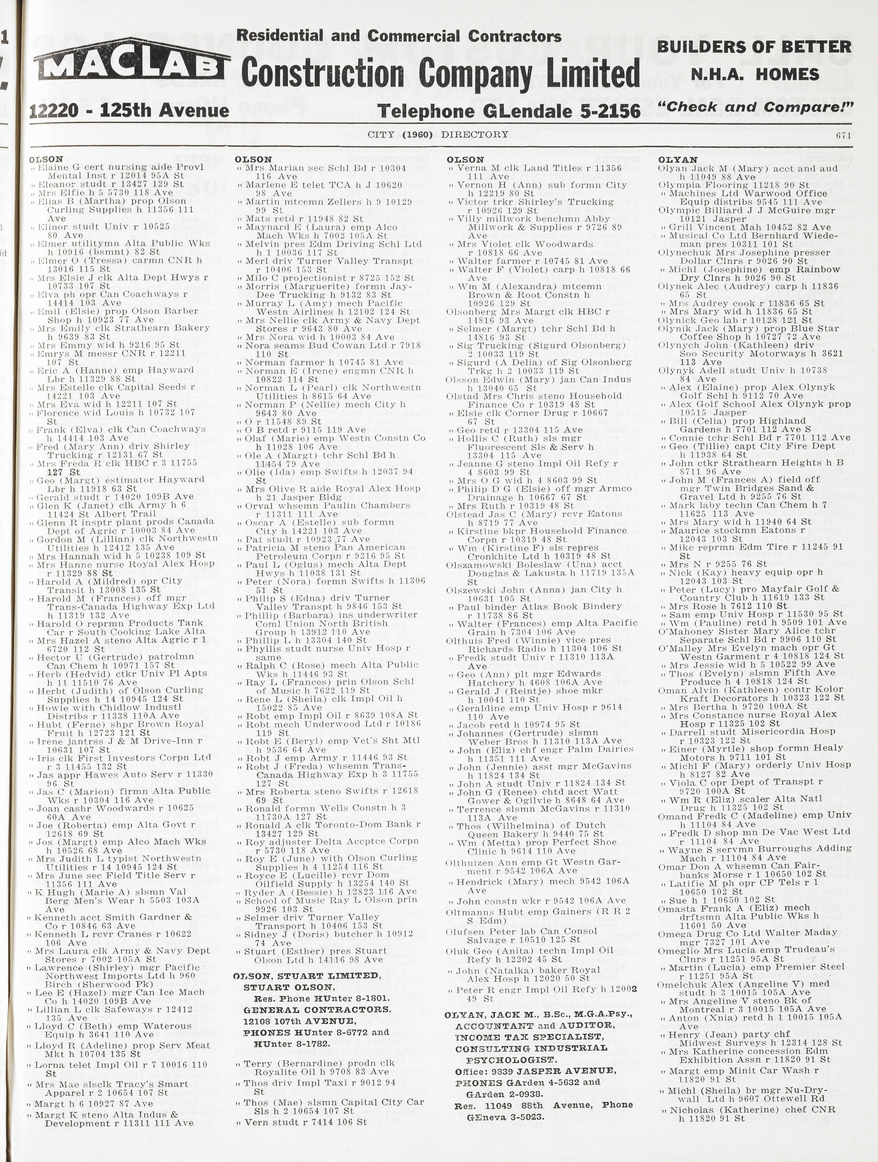 MACLAB
Residential and Commercial Contractors
Construction Company Limited
BUILDERS OF BETTER
N.H.A. HOMES
12220 - 125th Avenue
Telephone GLendale 5-2156
"Check and Compare!"
CITY (1960) DIRECTORY
671
OLSON
" Elaine G cert nursing aide Provl
Mental Inst r 12014 95A St
" Eleanor studt r 13427 129 St
" Mrs Elfie h 5 5730 118 Ave
" Elias B (Martha) prop Olson
Curling Supplies h 11356 111
Ave
" Elinor studt Univ r 10525
80 Ave
" Elmer utilitymn Alta Public Wks
h 10916 (bsmnt) 82 St
" Elmer O (Tressa) carmn CNR h
13016 115 St
" Mrs Elsie J clk Alta Dept Hwys r
10733 107 St
" Elva ph opr Can Coachways r
14414 103 Ave
" Emil (Elsie) prop Olson Barber
Shop h 10923 77 Ave
" Mrs Emily clk Strathearn Bakery
h 9639 83 St
" Mrs Emmy wid h 9216 95 St
" Emrys M messr CNR r 12211
107 St
" Eric A (Hanne) emp Hayward
Lbr h 11329 88 St
" Mrs Estelle clk Capital Seeds r
14221 103 Ave
" Mrs Eva wid h 12211 107 St
" Florence wid Louis h 10732 107
St
" Frank (Elva) clk Can Coachways
h 14414 103 Ave
" Fred (Mary Ann) driv Shirley
Trucking r 12131 67 St
" Mrs Freda R clk HBC r 3 11755
127 St
" Geo (Margt) estimator Hayward
Lbr h 11918 63 St
" Gerald studt r 14020 109B Ave
" Glen K (Janet) clk Army h 6
11424 St Albert Trail
" Glenn R insptr plant prods Canada
Dept of Agric r 10003 84 Ave
" Gordon M (Lillian) clk Northwestn
Utilities h 12412 135 Ave
" Mrs Hannah wid h 5 10238 109 St
" Mrs Hanne nurse Royal Alex Hosp
r 11329 88 St
" Harold A (Mildred) opr City
Transit h 13008 135 St
" Harold M (Frances) off mgr
Trans-Canada Highway Exp Ltd
h 11319 132 Ave
" Harold O reprmn Products Tank
Car r South Cooking Lake Alta
" Mrs Hazel A steno Alta Agric r 1
6720 112 St
" Hector U (Gertrude) patrolmn
Can Chem h 10971 157 St
" Herb (Hedvid) ctkr Univ Pl Apts
h 11 11510 76 Ave
" Herbt (Judith) of Olson Curling
Supplies h 14 10945 124 St
" Howie with Chidlow Industl
Distribs r 11338 110A Ave
" Hubt (Ferne) shpr Brown Royal
Fruit h 12723 121 St
" Irene jantrss J & M Drive-Inn r
10631 107 St
" Iris clk First Investors Corpn Ltd
r 3 11455 132 St
" Jas appr Hawes Auto Serv r 11330
96 St
" Jas C (Marion) firmn Alta Public
Wks r 10304 116 Ave
" Joan cashr Woodwards r 10625
60A Ave
" Joe (Roberta) emp Alta Govt r
12618 69 St
" Jos (Margt) emp Alco Mach Wks
h 10526 68 Ave
" Mrs Judith L typist Northwestn
Utilities r 14 10945 124 St
" Mrs June sec Field Title Serv r
11356 111 Ave
" K Hugh (Marie A) slsmn Val
Berg Men's Wear h 5503 103A
Ave
" Kenneth acct Smith Gardner &
Co r 10846 63 Ave
" Kenneth L rcvr Cranes r 10622
106 Ave
" Mrs Laura clk Army & Navy Dept
Stores r 7002 105A St
" Lawrence (Shirley) mgr Pacific
Northwest Imports Ltd h 960
Birch (Sherwood Pk)
" Lee E (Hazel) mgr Can Ice Mach
Co h 14020 109B Ave
" Lillian L clk Safeways r 12412
135 Ave
" Lloyd C (Beth) emp Waterous
Equip h 3641 110 Ave
" Lloyd R (Adeline) prop Serv Meat
Mkt h 10704 135 St
" Lorna telet Impl Oil r 7 10016 110
St
" Mrs Mae slsclk Tracy's Smart
Apparel r 2 10654 107 St
" Margt h 6 10927 87 Ave
" Margt K steno Alta Indus &
Development r 11311 111 Ave
OLSON
" Mrs Marian sec Schl Bd r 10304
116 Ave
" Marlene E telet TCA h J 10620
98 Ave
" Martin mtcemn Zellers h 9 10129
99 St
" Mats retd r 11948 82 St
" Maynard E (Laura) emp Alco
Mach Wks h 7002 105A St
" Melvin pres Edm Driving Schl Ltd
h 1 10036 117 St
" Merl driv Turner Valley Transpt
r 10406 153 St
" Milo C projectionist r 8725 152 St
" Morris (Marguerite) formn Jay-
Dee Trucking h 9132 83 St
" Murray L (Amy) mech Pacific
Westn Airlines h 12102 124 St
" Mrs Nellie clk Army & Navy Dept
Stores r 9643 80 Ave
" Mrs Nora wid h 10003 84 Ave
" Nora seams Bud Cowan Ltd r 7918
110 St
" Norman farmer h 10745 81 Ave
" Norman E (Irene) engmn CNR h
10822 114 St
" Norman L (Pearl) clk Northwestn
Utilities h 8615 64 Ave
" Norman P (Nellie) mech City h
9643 80 Ave
" O r 11548 89 St
" O B retd r 9115 119 Ave
" Olaf (Marie) emp Westn Constn Co
h 11028 106 Ave
" Ole A (Margt) tchr Schl Bd h
11454 79 Ave
" Olie (Ida) emp Swifts h 12037 94
St
" Mrs Olive R aide Royal Alex Hosp
h 21 Jasper Bldg
" Orval whsemn Paulin Chambers
r 11311 111 Ave
" Oscar A (Estelle) sub formn
City h 14221 103 Ave
" Pat studt r 10923 77 Ave
" Patricia M steno Pan American
Petroleum Corpn r 9216 95 St
" Paul L (Oglus) mech Alta Dept
Hwys h 11038 131 St
" Peter (Nora) formn Swifts h 11306
51 St
" Philip S (Edna) driv Turner
Valley Transpt h 9846 153 St
" Phillip (Barbara) ins underwriter
Coml Union North British
Group h 13912 110 Ave
" Phillip L h 13304 140 St
" Phyllis studt nurse Univ Hosp r
same
" Ralph C (Rose) mech Alta Public
Wks h 11446 93 St
" Ray L (Frances) prin Olson Schl
of Music h 7622 119 St
" Rene L (Sheila) clk Impl Oil h
15022 85 Ave
" Robt emp Impl Oil r 8639 108A St
" Robt mech Underwood Ltd r 10186
119 St
" Robt E (Beryl) emp Vet's Sht Mtl
h 9536 64 Ave
" Robt J emp Army r 11446 93 St
" Robt J (Freda) whsemn Trans-
Canada Highway Exp h 3 11755
127 St
" Mrs Roberta steno Swifts r 12618
69 St
" Ronald formn Wells Constn h 3
11730A 127 St
" Ronald A clk Toronto-Dom Bank r
13427 129 St
" Roy adjuster Delta Accptce Corpn
r 5730 118 Ave
" Roy E (June) with Olson Curling
Supplies h 4 11254 116 St
" Royce E (Lucille) rcvr Dom
Oilfield Supply h 13254 140 St
" Ryder A (Bessie) h 12823 116 Ave
" School of Music Ray L Olson prin
9926 103 St
" Selmer driv Turner Valley
Transport h 10406 153 St
" Sidney J (Doris) butcher h 10912
74 Ave
" Stuart (Esther) pres Stuart
Olson Ltd h 14116 98 Ave
OLSON, STUART LIMITED,
STUART OLSON,
Res. Phone HUnter 8-1801.
GENERAL CONTRACTORS.
12108 107th AVENUE,
PHONES HUnter 8-6772 and
HUnter 8-1782.
" Terry (Bernardine) prodn clk
Royalite Oil h 9708 83 Ave
" Thos driv Impl Taxi r 9012 94
St
" Thos (Mae) slsmn Capital City Car
Sls h 2 10654 107 St
" Vern studt r 7414 106 St
OLSON
" Verna M clk Land Titles r 11356
111 Ave
" Vernon H (Ann) sub formn City
h 12219 80 St
" Victor trkr Shirley's Trucking
r 10926 129 St
" Villy millwork benchmn Abby
Millwork & Supplies r 9726 89
Ave
" Mrs Violet clk Woodwards
r 10818 66 Ave
" Walter farmer r 10745 81 Ave
" Walter F (Violet) carp h 10818 66
Ave
" Wm M (Alexandra) mtcemn
Brown & Root Constn h
10926 129 St
Olsonberg Mrs Margt clk HBC r
14816 93 Ave
" Selmer (Margt) tchr Schl Bd h
14816 93 St
" Sig Trucking (Sigurd Olsonberg)
2 10033 119 St
" Sigurd (A Delia) of Sig Olsonberg
Trkg h 2 10033 119 St
Olsson Edwin (Mary) jan Can Indus
h 13040 65 St
Olstad Mrs Chris steno Household
Finance Co r 10319 48 St
" Elsie clk Corner Drug r 10667
67 St
" Geo retd r 13304 115 Ave
" Hollis C (Ruth) sls mgr
Fluorescent Sls & Serv h
13304 115 Ave
" Jeanne G steno Impl Oil Refy r
4 8603 99 St
" Mrs O G wid h 4 8603 99 St
" Philip D G (Elsie) off mgr Armco
Drainage h 10667 67 St
" Mrs Ruth r 10319 48 St
Olstead Jas C (Mary) rcvr Eatons
h 8719 77 Ave
" Kirstine bkpr Household Finance
Corpn r 10319 48 St
" Wm (Kirstine F) sls repres
Cronkhite Ltd h 10319 48 St
Olszamowski Boleslaw (Una) acct
Douglas & Lakusta h 11719 135A
St
Olszewski John (Anna) jan City h
10631 105 St
" Paul binder Atlas Book Bindery
r 11738 86 St
" Walter (Frances) emp Alta Pacific
Grain h 7304 106 Ave
Olthuis Fred (Winnie) vice pres
Richards Radio h 11304 106 St
" Fredk studt Univ r 11310 113A
Ave
" Geo (Ann) plt mgr Edwards
Hatchery h 4608 106A Ave
" Gerald J (Reintje) shoe mkr
h 10041 110 St
" Geraldine emp Univ Hosp r 9614
110 Ave
" Jacob retd h 10974 95 St
" Johannes (Gertrude) slsmn
Weber Bros h 11310 113A Ave
" John (Eliz) chf engr Palm Dairies
h 11351 111 Ave
" John (Jennie) asst mgr McGavins
h 11824 134 St
" John A studt Univ r 11824 134 St
" John G (Renee) chtd acct Watt
Gower & Ogilvie h 8648 64 Ave
" Terrence slsmn McGavins r 11310
113A Ave
" Thos (Wilhelmina) of Dutch
Queen Bakery h 9440 75 St
" Wm (Metta) prop Perfect Shoe
Clinic h 9614 110 Ave
Olthuizen Ann emp Gt Westn Gar-
ment r 9542 106A Ave
" Hendrick (Mary) mech 9542 106A
Ave
" John constn wkr r 9542 106A Ave
Oltmanns Hubt emp Gainers (R R 2
S Edm)
Olufsen Peter lab Can Consol
Salvage r 10510 125 St
Oluk Geo (Anita) techn Impl Oil
Refy h 12202 45 St
" John (Natalka) baker Royal
Alex Hosp h 12020 50 St
" Peter R engr Impl Oil Refy h 12002
49 St
OLYAN, JACK M., B.Sc., M.G.A.Psy.,
ACCOUNTANT and AUDITOR,
INCOME TAX SPECIALIST,
CONSULTING INDUSTRIAL
PSYCHOLOGIST.
Office: 9339 JASPER AVENUE,
PHONES GArden 4-5632 and
GArden 2-0938.
Res. 11049 88th Avenue, Phone
GEneva 3-5023.
OLYAN
Olyan Jack M (Mary) acct and aud
h 11049 88 Ave
Olympia Flooring 11218 90 St
" Machines Ltd Warwood Office
Equip distribs 9545 111 Ave
Olympic Billiard J J McGuire mgr
10121 Jasper
" Grill Vincent Mah 10452 82 Ave
" Musical Co Ltd Bernhard Wiede-
man pres 10311 101 St
Olynechuk Mrs Josephine presser
Dollar Clnrs r 9026 90 St
" Michl (Josephine) emp Rainbow
Dry Clnrs h 9026 90 St
Olynek Alec (Audrey) carp h 11836
65 St
" Mrs Audrey cook r 11836 65 St
" Mrs Mary wid h 11836 65 St
Olynick Geo lab r 10128 121 St
Olynik Jack (Mary) prop Blue Star
Coffee Shop h 10727 72 Ave
Olynych John (Kathleen) driv
Soo Security Motorways h 3621
113 Ave
Olynyk Adell studt Univ h 10738
84 Ave
" Alex (Elaine) prop Alex Olynyk
Golf Schl h 9112 70 Ave
" Alex Golf School Alex Olynyk prop
10515 Jasper
" Bill (Celia) prop Highland
Gardens h 7701 112 Ave S
" Connie tchr Schl Bd r 7701 112 Ave
" Geo (Tillie) capt City Fire Dept
h 11938 64 St
" John ctkr Strathearn Heights h B
8711 96 Ave
" John M (Frances A) field off
mgr Twin Bridges Sand &
Gravel Ltd h 9255 76 St
" Mark laby techn Can Chem h 7
11625 113 Ave
" Mrs Mary wid h 11940 64 St
" Maurice stockmn Eatons r
12043 103 St
" Mike reprmn Edm Tire r 11245 91
St
" Mrs N r 9255 76 St
" Nick (Kay) heavy equip opr h
12043 103 St
" Peter (Lucy) pro Mayfair Golf &
Country Club h 11619 133 St
" Mrs Rose h 7612 110 St
" Sam emp Univ Hosp r 11530 95 St
" Wm (Pauline) retd h 9509 101 Ave
O'Mahoney Sister Mary Alice tchr
Separate Schl Bd r 9906 110 St
O'Malley Mrs Evelyn mach opr Gt
Westn Garment r 4 10818 124 St
" Mrs Jessie wid h 5 10522 99 Ave
" Thos (Evelyn) slsmn Fifth Ave
Produce h 4 10818 124 St
Oman Alvin (Kathleen) contr Kolor
Kraft Decorators h 10323 122 St
" Mrs Bertha h 9720 100A St
" Mrs Constance nurse Royal Alex
Hosp r 11325 102 St
" Darrell studt Misericordia Hosp
r 10323 122 St
" Einer (Myrtle) shop formn Healy
Motors h 9711 101 St
" Michl F (Mary) orderly Univ Hosp
h 8127 82 Ave
" Viola C opr Dept of Transpt r
9720 100A St
" Wm R (Eliz) scaler Alta Natl
Drug h 11325 102 St
Omand Fredk C (Madeline) emp Univ
h 11104 84 Ave
" Fredk D shop mn De Vac West Ltd
r 11104 84 Ave
" Wayne S servmn Burroughs Adding
Mach r 11104 84 Ave
Omar Don A whsemn Can Fair-
banks Morse r 1 10650 102 St
" Latifie M ph opr CP Tels r 1
10650 102 St
" Sue h 1 10650 102 St
Omasta Frank A (Eliz) mech
drftsmn Alta Public Wks h
11601 50 Ave
Omega Drug Co Ltd Walter Maday
mgr 7327 101 Ave
Omeglio Mrs Lucia emp Trudeau's
Clnrs r 11251 95A St
" Martin (Lucia) emp Premier Steel
r 11251 95A St
Omelchuk Alex (Angeline V) med
studt h 3 10015 105A Ave
" Mrs Angeline V steno Bk of
Montreal r 3 10015 105A Ave
" Anton (Xnia) retd h 1 10015 105A
Ave
" Henry (Jean) party chf
Midwest Surveys h 12314 128 St
" Mrs Katherine concession Edm
Exhibition Assn r 11820 91 St
" Margt emp Minit Car Wash r
11820 91 St
" Michl (Sheila) br mgr Nu-Dry-
wall Ltd h 9607 Ottewell Rd
" Nicholas (Katherine) chef CNR
h 11820 91 St